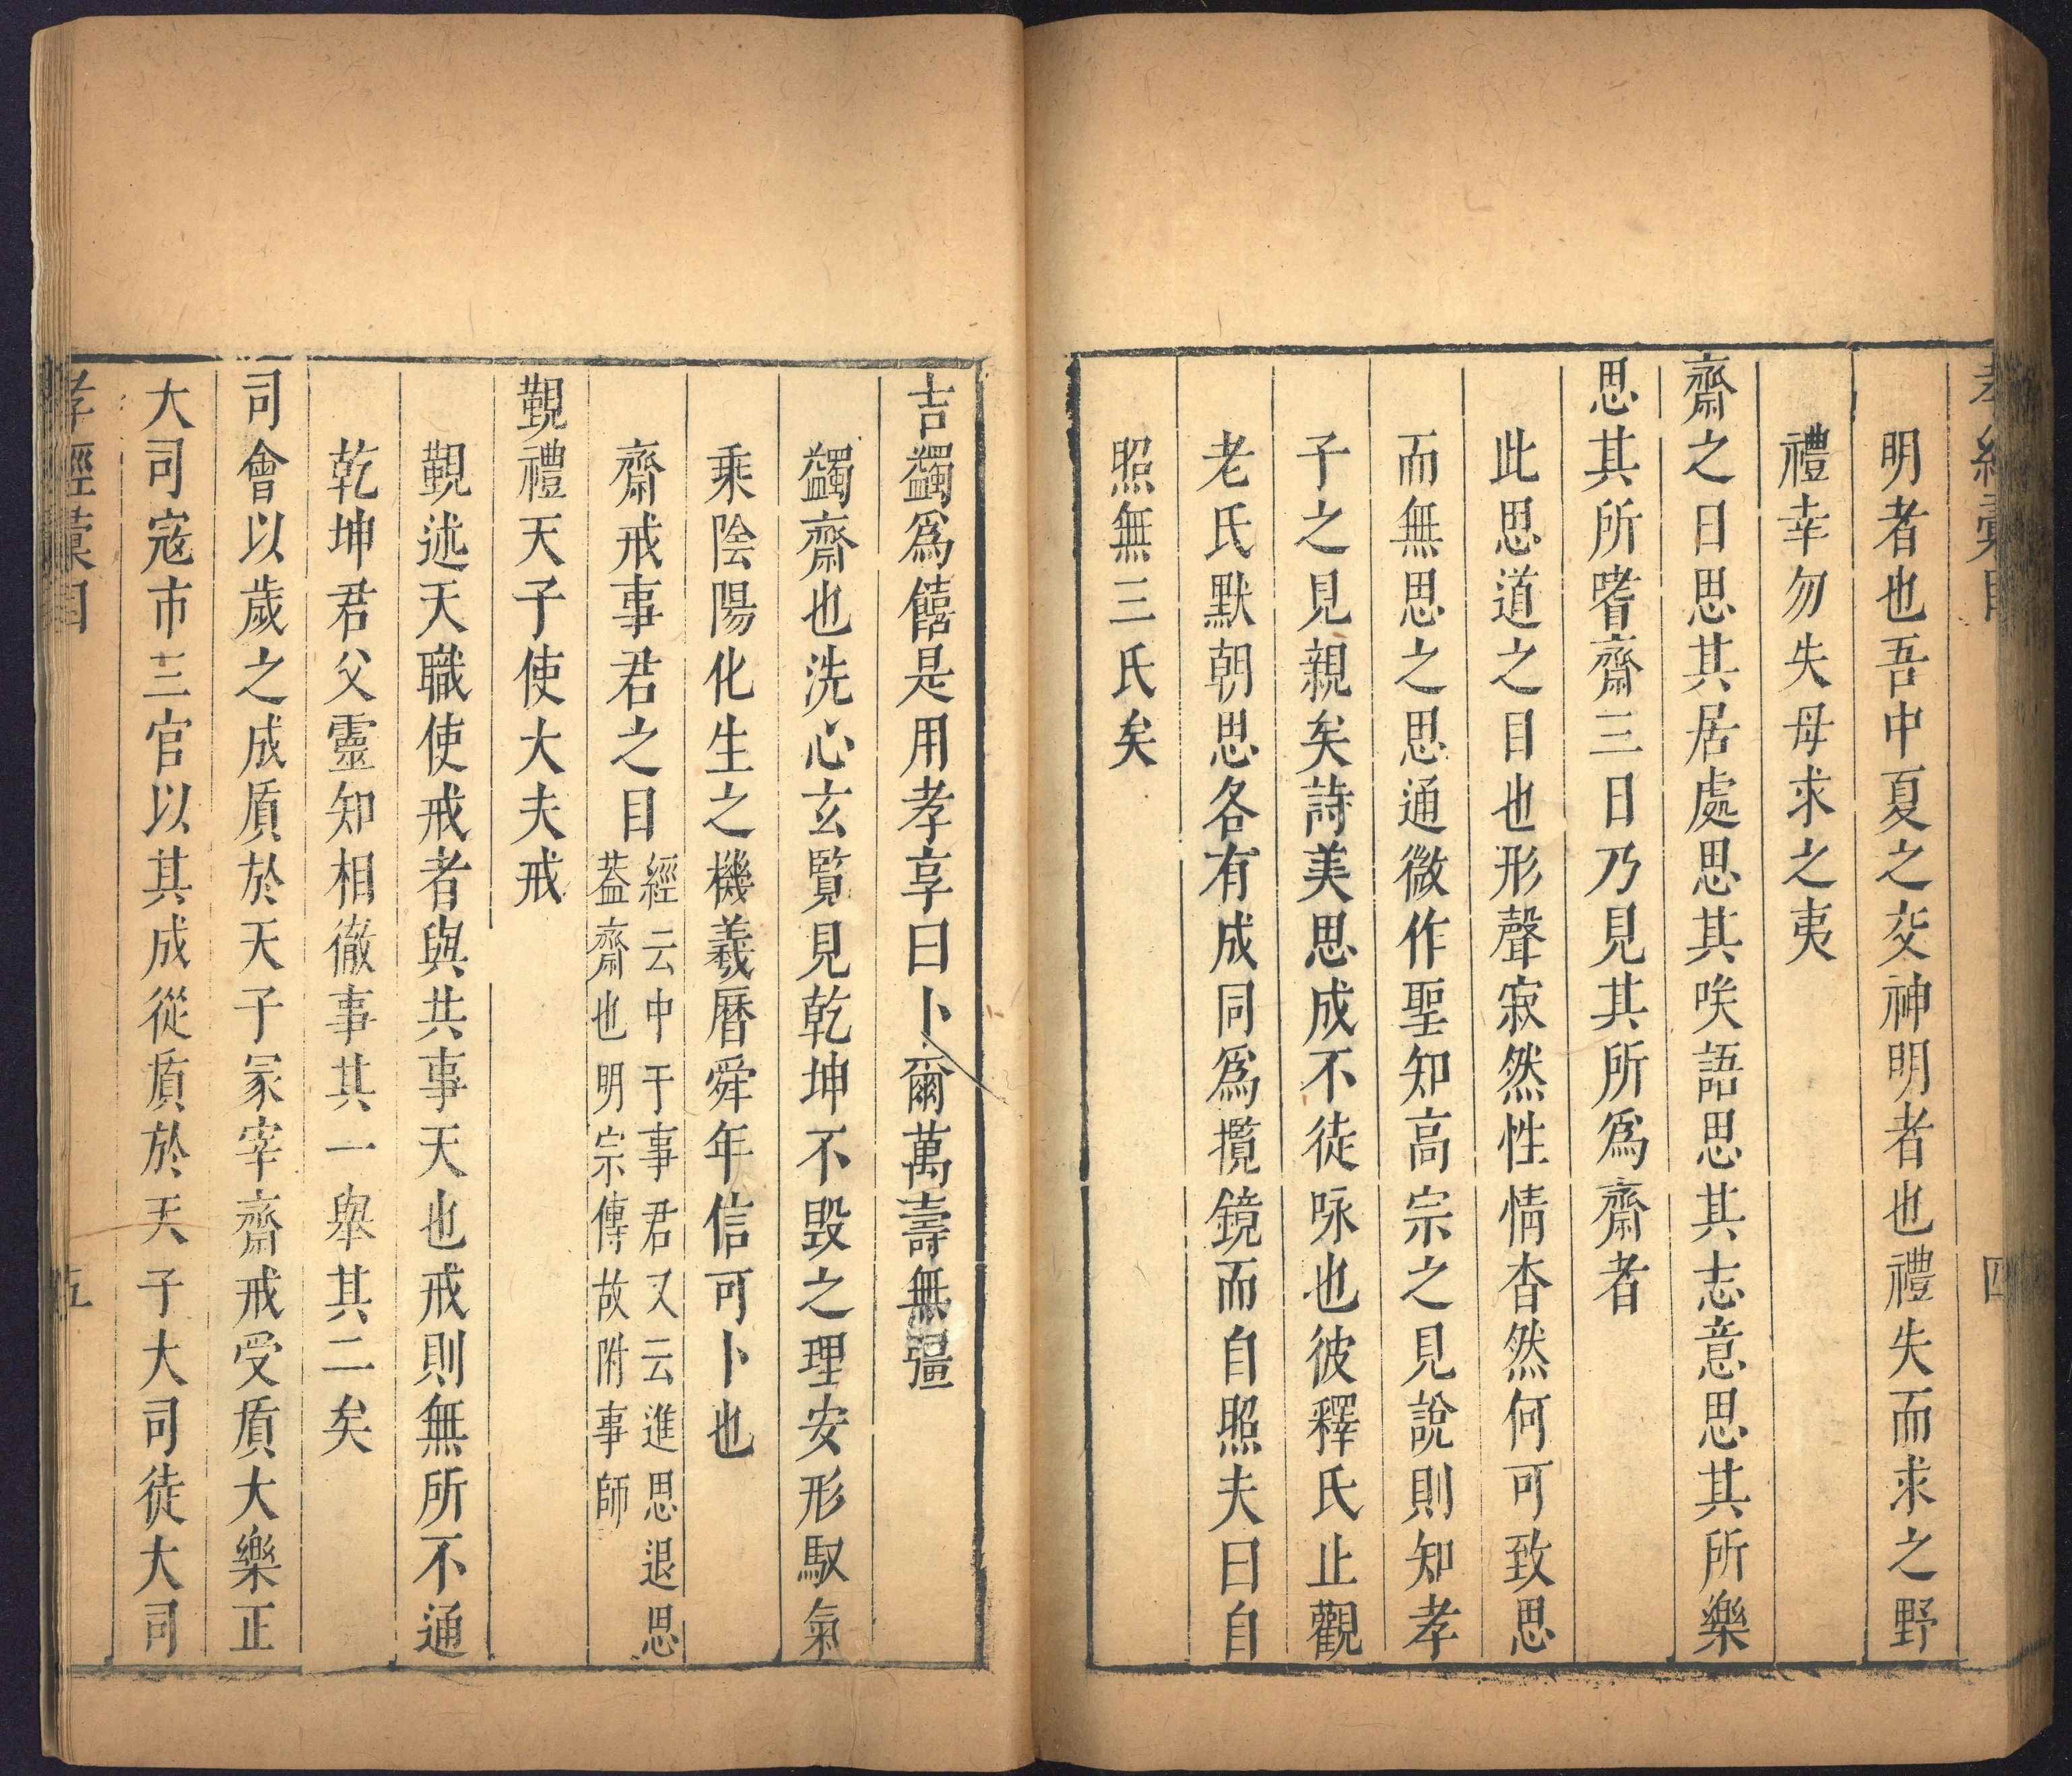 孝經彙目
四
明者也吾中夏之交神明者也禮失而求之野
禮幸勿失母求之夷
齋之日思其居處思其咲語思其志意思其所樂
思其所嗜齋三日乃見其所爲齋者
此思道之目也形聲寂然性情杳然何可致思
而無思之思通微作聖知高宗之見說則知孝
子之見親矣詩美思成不徒咏也彼釋氏止觀
老氏默朝思各有成同爲攬鏡而自照夫曰自
照無三氏矣
吉蠲爲饎是用孝享曰卜爾萬壽無彊
蠲齋也洗心玄覽見乾坤不毀之理安形馭氣
乘陰陽化生之機羲曆舜年信可卜也
齋戒事君之目
經云中于事君又云進思退思
葢齋也明宗傳故附事師
覲禮天子使大夫戒
覲述天職使戒者與共事天也戒則無所不通
乾坤君父靈知相徹事其一舉其二矣
司會以歲之成質於天子冢宰齋戒受質大樂正
大司寇市三官以其成從質於天子大司徒大司
孝經彙目
五